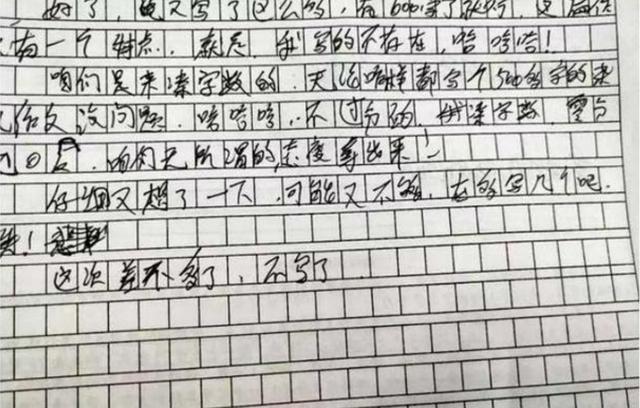 好了，也又写了这么多，有600字了
有一个特点，就是，我写的不存在，哈哈哈！
咱们是来凑字数的，无论咋样都写个500多字的
给文没问题，哈哈哈，不过分的，我凑字数，零
咱们无所谓的态度拿出来！
仔细又想了一下，可能又不够，在多写几个吧.
这次差不多了，不写了